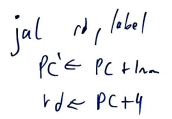 jal rd, label
PC' ← PC + Imm
rd ← PC+4